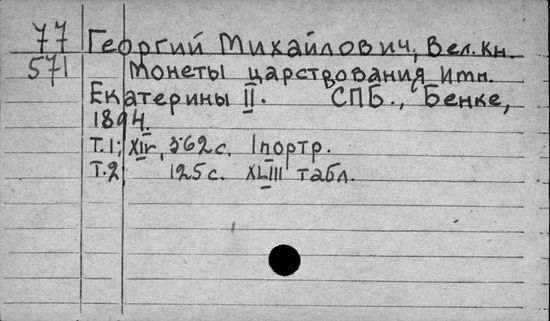 77 Георгий Михайлович, Вел. кн.
571 Монеты царствования имп.
Екатерины II. СПБ., Бенке,
1894.
Т.1; XIV, 262 с. 1 портр.
Т.2; 125 с. XLIII табл.